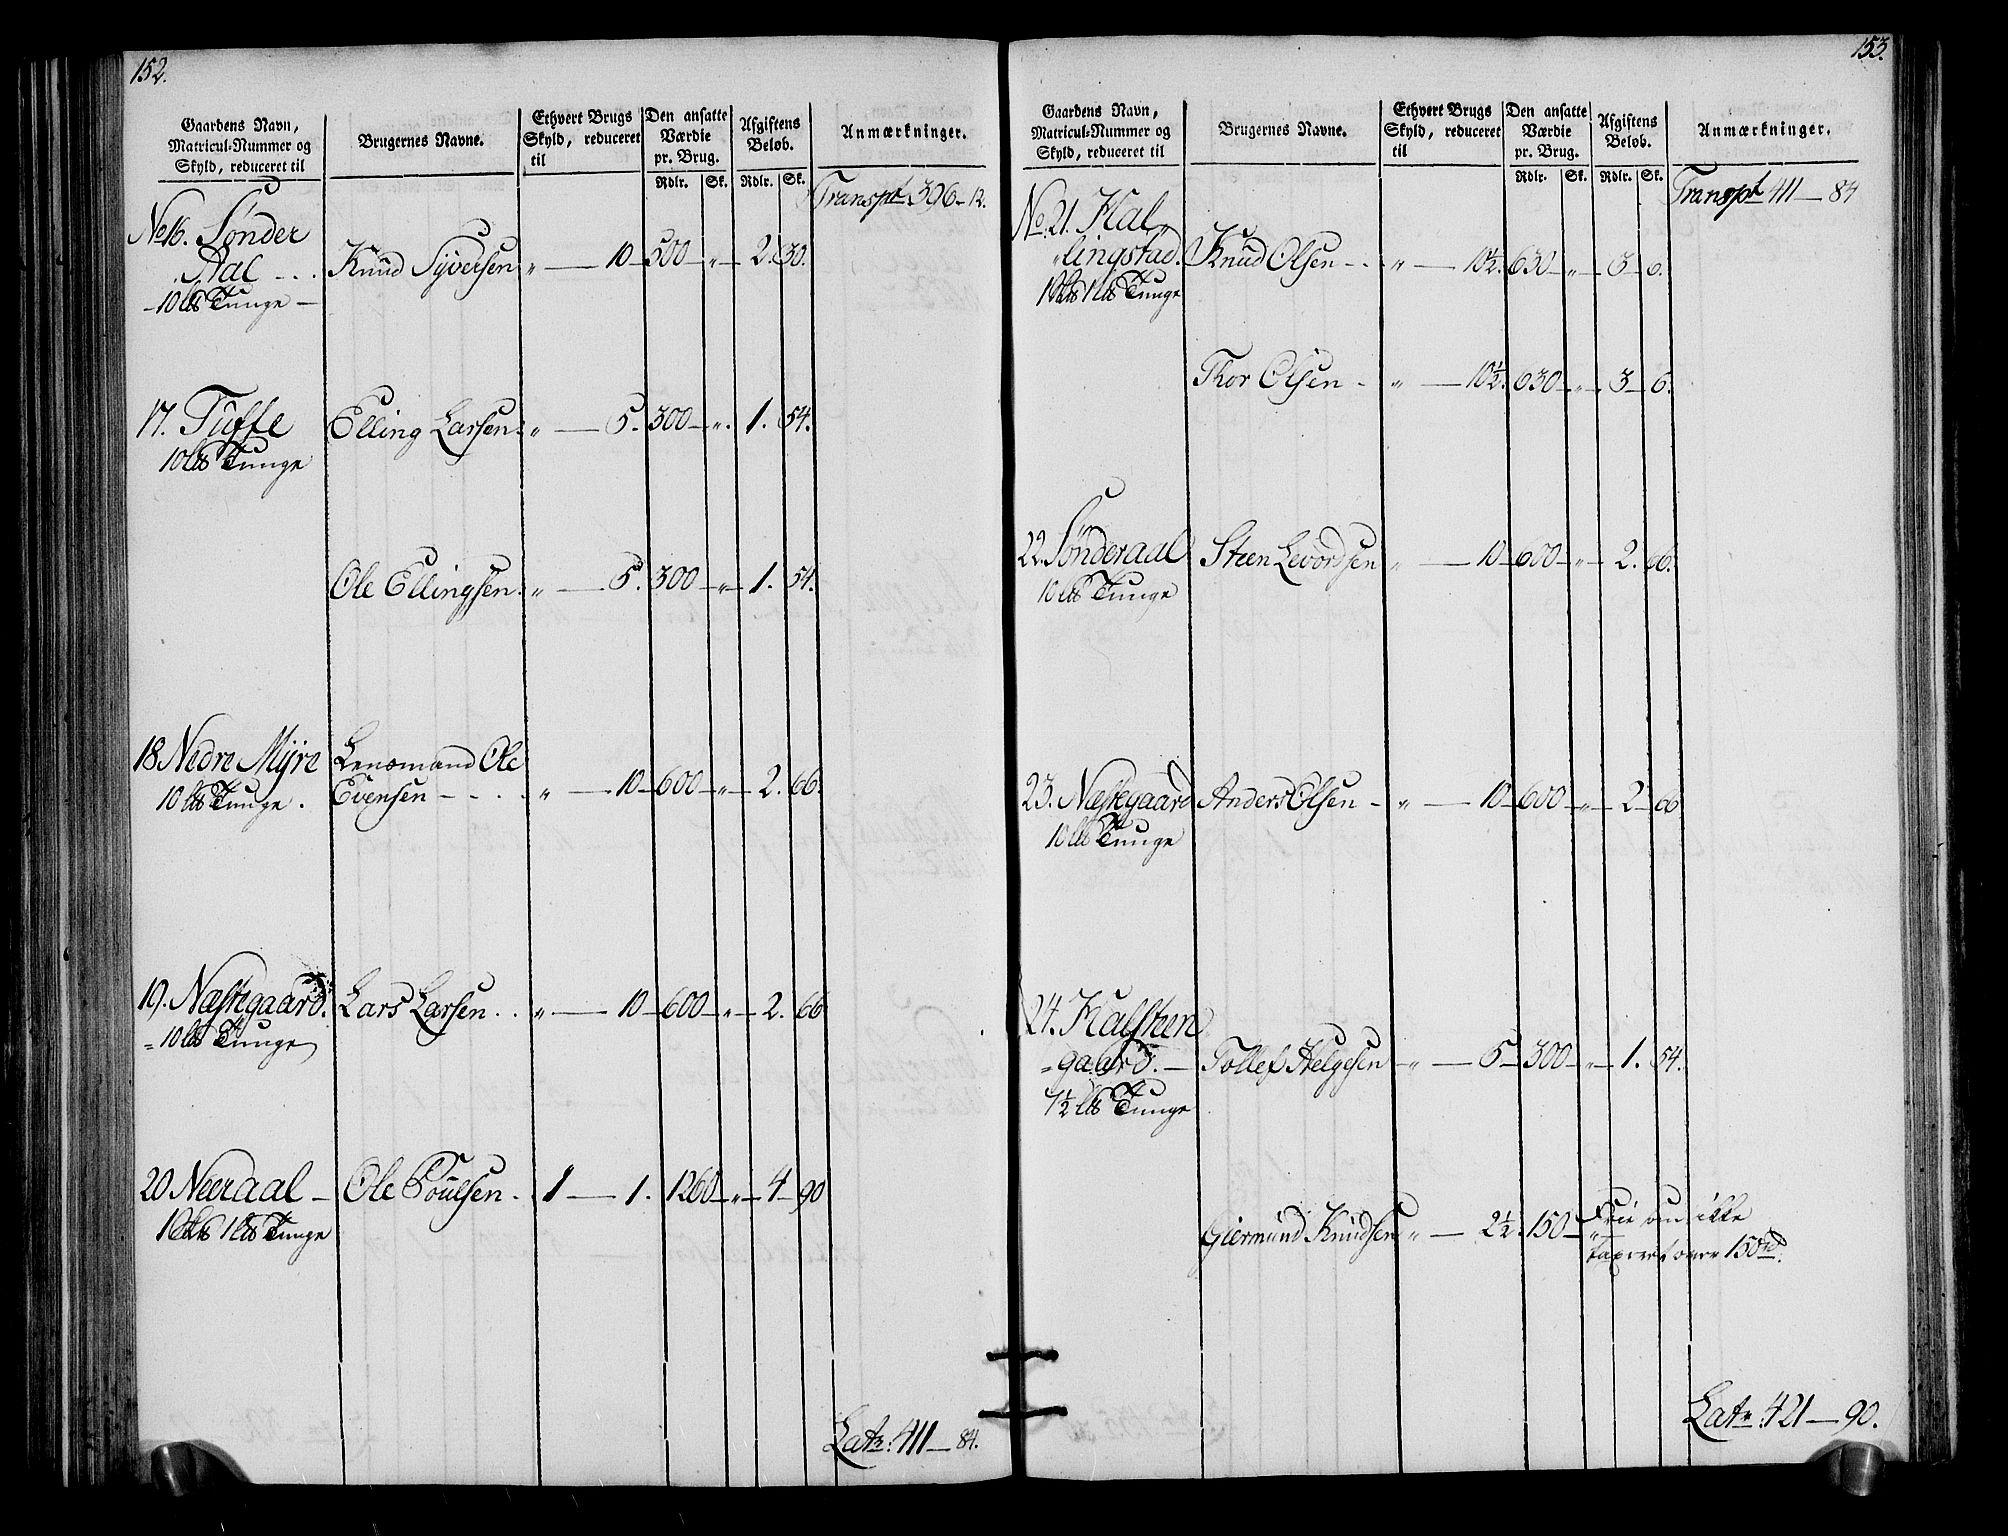 152.
Gaardens Navn,
Matricul-Nummer og
Skyld, reduceret til
Brugernes Navne.
Ethvert Brugs
Skyld, reduceret
til
Den ansatte
Værdie
pr. Brug.
Rdlr. Sk.
Afgiftens
Beløb.
Rdlr. Sk.
Anmærkninger.
Transpt 396 - 12.
No 16. Sønder
Aal - - . Knud Syversen „ — 10 - 500 - „ - 2. 30.
- 10 Lb Tunge -
17. Tuffe Elling Larsen . „ — 5. 300 - „. 1. 54.
10 Lb Tunge
Ole Ellingsen . „ — 5. 300 - „ - 1. 54.
18 Nedre Myre Lensmand Ole
10 Lb Tunge . Evensen - - - . „ — 10 - 600 - „ - 2. 66.
19. Næstegaard. Lars Larsen . . „ — 10 - 600 - „ - 2. 66
= 10 Lb Tunge
20 Neeraal - Ole Poulsen . 1 — 1. 1260 - „ - 4 - 90
1 1 Lb Tunge
Latr: 411 - 84.
153.
Gaardens Navn,
Matricul-Nummer og
Skyld, reduceret til
Brugernes Navne.
Ethvert Brugs
Skyld, reduceret
til
Den ansatte
Værdie
pr. Brug.
Rdlr. Sk.
Afgiftens
Beløb.
Rdlr. Sk.
Anmærkninger.
Transpt 411 - 84
No. 21. Hal„
„lingstad. Knud Olsen - . „ — 10½. 630 - „ - 3 - 6.
1 1 Lb Tunge
Thor Olsen - „ — 10½. 630 - „ - 3 - 6.
22. Sønderaal Steen Levordsen „ — 10 - 600 - „ - 2. 66.
10 Lb Tunge
23. Næstegaard Anders Olsen - „ — 10 - 600 - „ - 2 - 66
10 Lb Tunge
24. Halsteen
=gaard. - Tollef Helgesen „ — 5 - 300 - „ - 1. 54.
7½ Lb Tunge
Giermund Knudsen „ — 2½. 150 - „ Frie om ikke
taxeret over 150 rd.
Latr: 421 — 90.